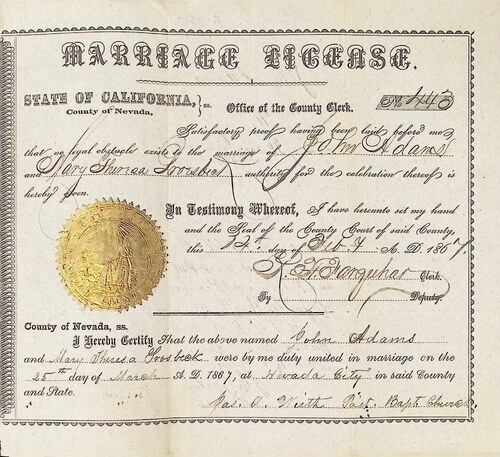 MARRIAGE LICENSE.
STATE OF CALIFORNIA, } ss. Office of the County Clerk. No 443
County of Nevada,
Satisfactory proof having been laid before me
that no legal obstacle exists to the marriage of John Adams
and Mary Theresa Grosbeck authority for the celebration thereof is
hereby given.
In Testimony Whereof, I have hereunto set my hand
and the Seal of the County Court of said County,
this 12th day of Feby A. D. 1867,
Farquhar Clerk.
By Deputy.
County of Nevada, ss.
I Hereby Certify That the above named John Adams
and Mary Theresa Grosbeck were by me duly united in marriage on the
25th day of March A. D. 1867, at Nevada City in said County
and State.
Jas. Past. Bapt Church